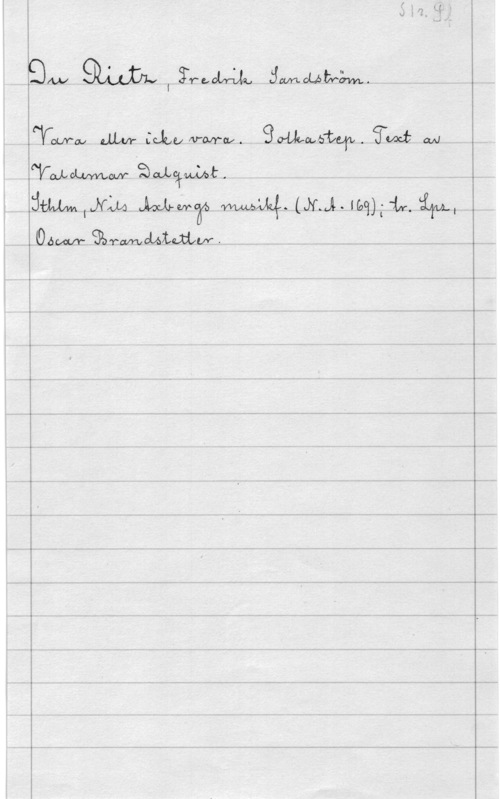 S12. Pl
Du Rietz, Fredrik Sandström.
Vara eller icke vara. Polkastep. Text av
Valdemar Dalquist.
Sthlm, Nils Axbergs musikf. (N.A. 169); tr. Lpz,
Oscar Brandstetter.